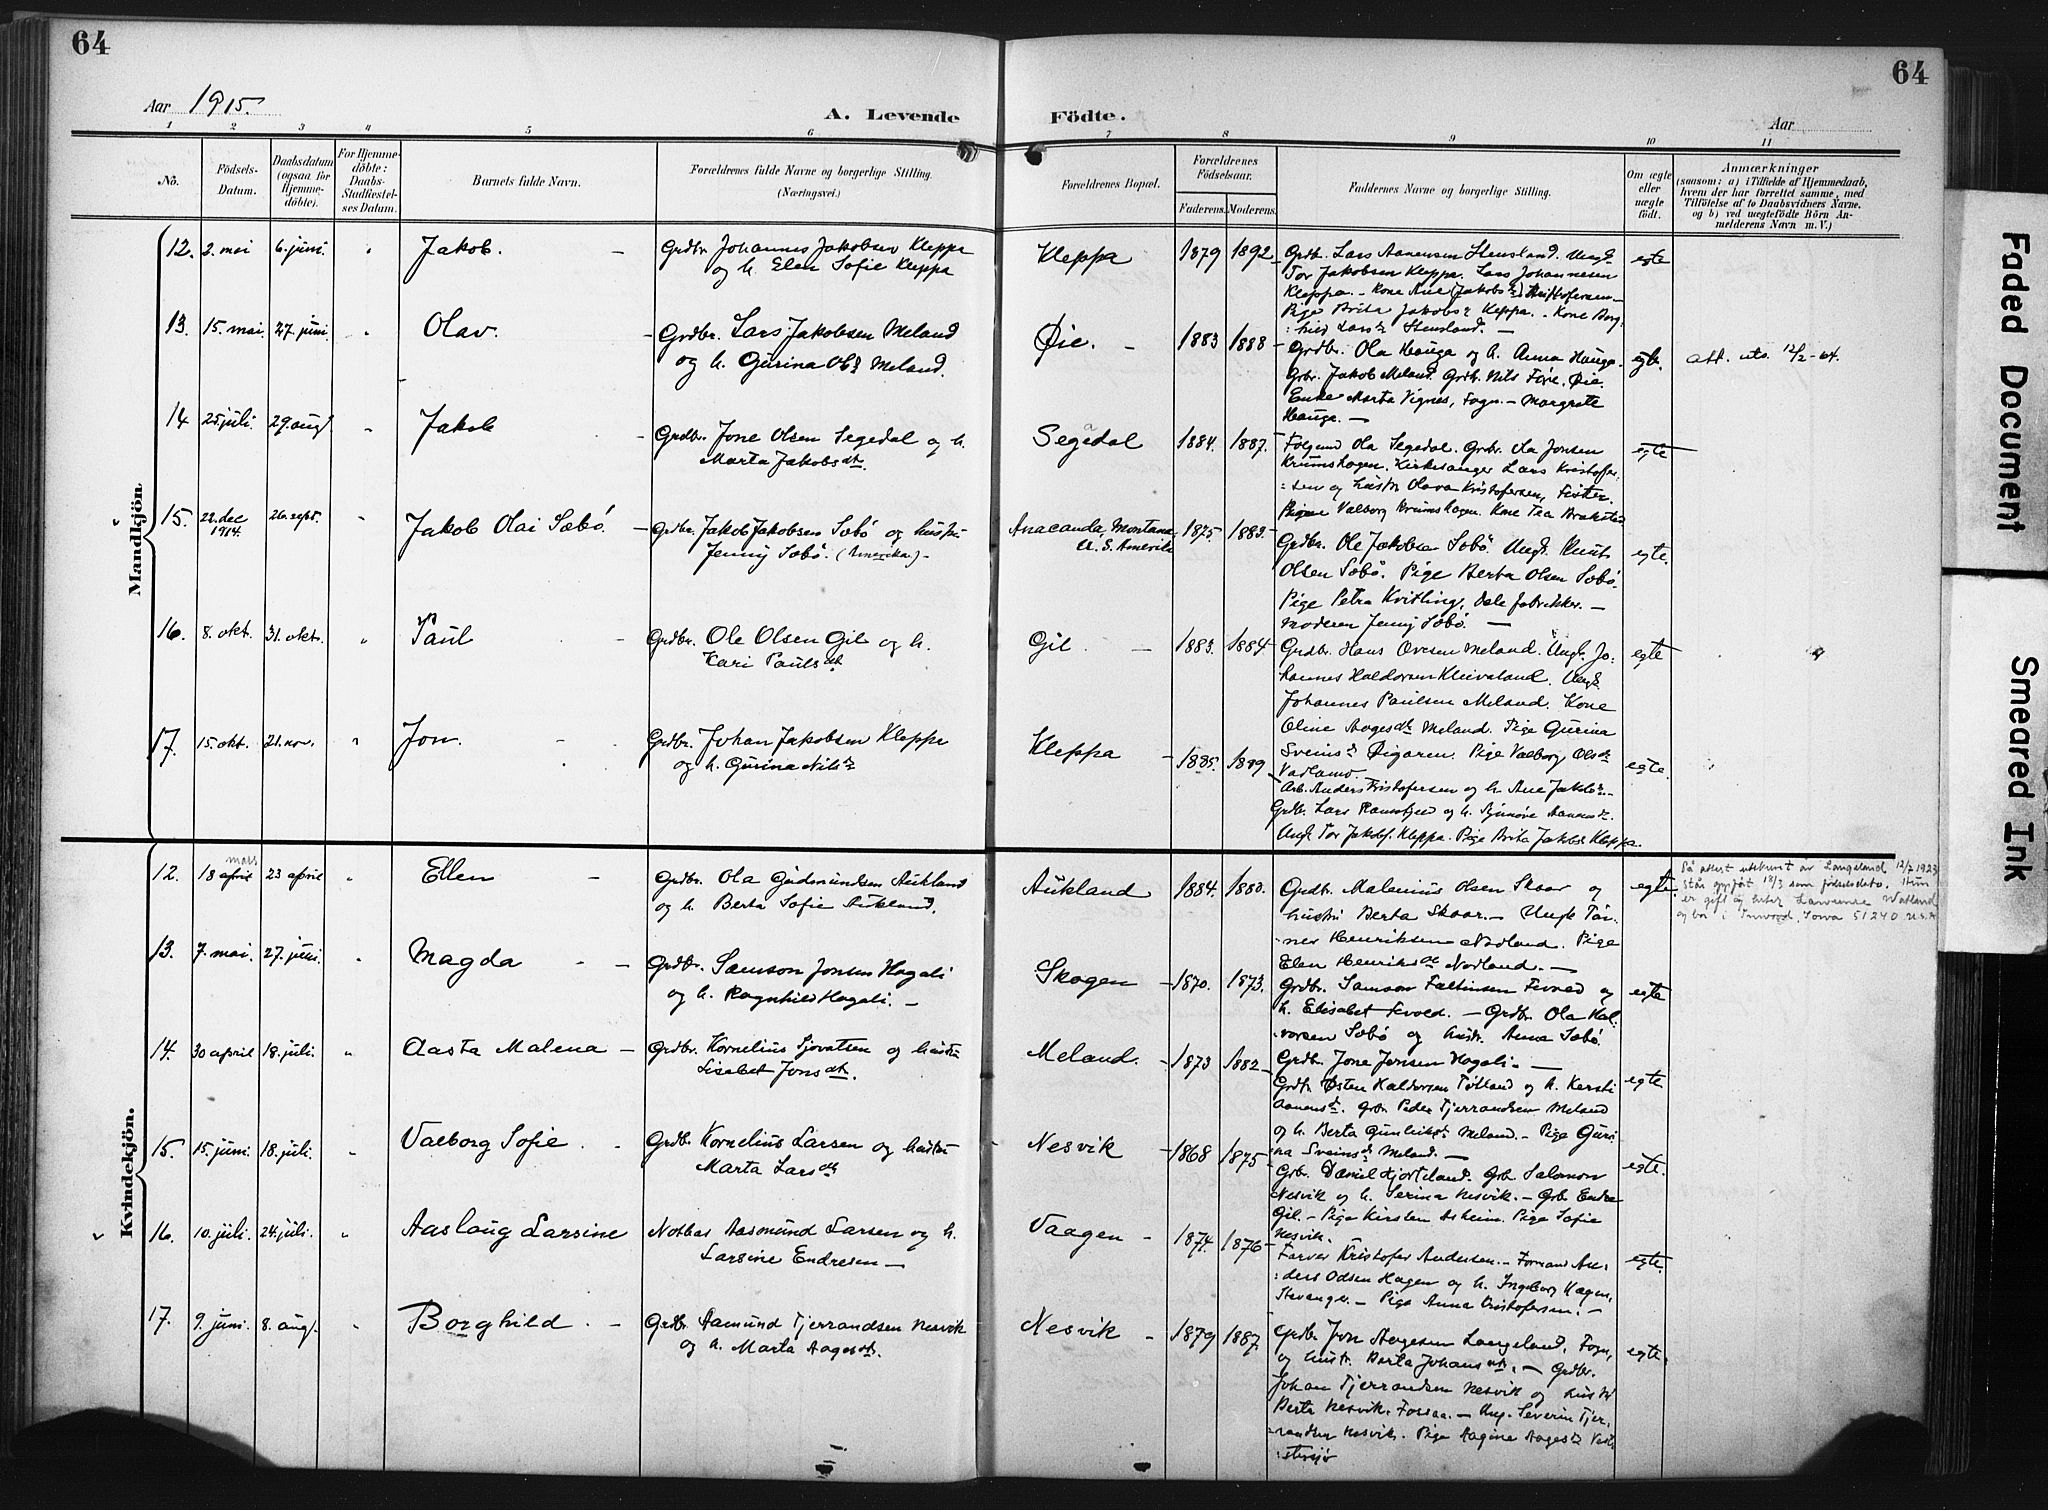 64
64
Aar 1915.
A. Levende
Födte.
Aar
1 2 3 4 5 6 7 8 9 10 11
No.
Födsels-
Datum.
Daabsdatum
(ogsaa for
Hjemme-
döbte).
For Hjemme-
döbte:
Daabs-
Stadfæstel-
ses Datum.
Barnets fulde Navn.
Forældrenes fulde Navne og borgerlige Stilling.
(Næringsvei.)
Forældrenes Bopæl.
Forældrenes
Födselsaar.
Faderens. Moderens.
Faddernes Navne og borgerlige Stilling.
Om ægte
eller
uægte
födt.
Anmærkninger
(saasom: a) i Tilfælde af Hjemmedaab,
hvem der har forrettet samme, med
Tilföielse af to Daabsvidners Navne.
og b) ved uægtefödte Börn An-
melderens Navn m. V.)
Mandkjön.
12. 2. mai 6. juni. " Jakob. –
Grdbr. Johannes Jakobsen Kleppa
og h. Elen Sofie Kleppa
Kleppa 1879 1892
Grdbr. Lars Aanensen Stensland. Ungk.
Tor Jakobsen Kleppa. Lars Johannesen
Kleppa. – Kone Ane (Jakobsd.) Kristofersen –
Pige Brita Jakobsd. Kleppa. – Kone Borg-
:hild Larsd. Stensland. –
egte
13. 15. mai. 27. juni. " Olav. –
Grdbr. Lars Jakobsen Meland
og h. Gurina Olsd. Meland.
Øie. – 1883 1888
Grdbr. Ola Hauga og h. Anna Hauga.
Grbr. Jakob Meland. Grdb. Nils Före, Øie.
Enke Marta Vignes, Fogn. – Margrete
Hauga. –
egte. att. uts. 12/2 - 64.
14 25. juli. 29. aug. " Jakob –
Grdbr. Jone Olsen Segedal og h.
Marta Jakobsdt.
Segedal 1884. 1887.
Folgemd Ola Segedal. Grdbr. Ola Jonsen
Krumshagen. Kirkesanger Lars Kristoffer
:sen og hustr Olava Kristofersen, Fister.
Pigen Valborg Krumshagen. Kone Tea
egte
15. 22. dec 1914. 26. sept. " Jakob Olai Sæbö. –
Grdbr. Jakob Jakobsen Sæbö og hustru
Jenny Sæbö. (Amerika.) –
Anacanda, Montana,
U. S. Amerika
1875 1883.
Grdbr. Ole Jakobsen Sæbö. Ungk. Knut
Olsen Sæbö. Pige Berta Olsen Sæbö.
Pige Petra Kvitling, Dale fabrikker. –
Moderen Jenny Sæbö. –
egte.
16. 8. okt. 31. okt. " Paul –
Grdbr. Ole Olsen Gil og h.
Kari Paulsdt.
Gil. – 1883. 1884
Grdbr. Hans Ovesen Meland. Ungk. Jo:
hannes Haldorsen Kleivaland. Ungk.
Johannes Paulsen Meland. Kone
Oline Aagesdt. Meland. Pige Gurina
Sveinsd. Øigaren. Pige Valborg Olsdt.
Vadlamo.
egte
17. 15. okt. 21. nov. " Jon. –
Grdbr. Johan Jakobsen Kleppa
og h. Gurina Nilsd.
Kleppa – 1885. 1889
Arb. Anders Kristofersen og h. Ane Jakobsd. –
Grdbr. Lars Ramsfjed og h. Aanensd.
Ungk. Tor Jakobs. Kleppa. Pige Brita Jakobsd Kleppa.
egte.
Kvindekjön.
12. 18 april mars 23 april " Ellen –
Grdbr. Ola Gudmundsen Aukland
og h. Berta Sofie Aukland.
Aukland 1884. 1880.
Grdbr. Malenius Olsen Skaar og
hustru Berta Skaar. – Ungk. Tön-
:nes Henriksen Nadland. Pige
Elen Henriksdt. Nadland. –
egte.
Så attest utskrevet av Langeland 12/7 1923
står oppført 18/3 som födselsdato. Hun
er gift og heter Watland
og bor i Inwood, Iowa 51240 U.S.A
13. 7. mai. 27. juni. " Magda –
Grdbr. Samson Jonsen Hagali
og h. Ragnhild Hagali. –
Skogen 1870. 1873.
Grdbr. Samson Faltinsen Tivned og
h. Elisabet Tvold. – Grdbr Ola Hal.
:vorsen Sæbö og hustr. Anna Sæbö.
Grdb. Jone Jonsen Hagali. –
egte
14. 30 april 18. juli. " Aasta Malena –
Grdbr. Kornelius Sjovatsen og hustru
Lisabet Jonsdt.
Meland. – 1873 1882
Grdbr. Østen Haldorsen Tötland og h. Kersti
Aanensdt. Grbr. Peder Tjerrandsen Meland
og h. Berta Gunleiksd. Meland. – Pige Guri:
na Sveinsd. Meland. –
egte
15. 15. juni. 18. juli. " Valborg Sofie. –
Grdbr. Kornelius Larsen og hustru
Marta Larsdt.
Nesvik 1868 1875
Grbr. Daniel Hjorteland. Grb. Salomon
Nesvik og h. Serina Nesvik. – Grb. Endre
Gil. – Pige Kirsten Asheim. Pige Sofie
Nesvik.
egte.
16. 10. juli. 24. juli. " Aaslaug Larsine
Notbas Aasmund Larsen og h.
Larsine Endresen –
Vaagen – 1874. 1876
Farver Kristofer Andersen. – Formand An:
:ders Odsen Hagen og h. Ingeborg Hagen,
Stavanger. – Pige Anna Kristofersen. –
egte.
17. 9. juni. 8. aug. " Borghild. –
Grdbr. Aamund Tjerrandsen Nesvik
og h. Marta Aagesdt.
Nesvik – 1879 1887.
Grdbr Jon Aagesen Langeland, Fogn,
og hustr. Berta Johansdt. – Grdbr.
Johan Tjerrandsen Nesvik og hustr
Berta Nesvik. Fossaa. – Ung. Severin Tjer.
:randsen Nesvik. Pige Aagine Aagesd.
egte.
Faded Document
Smeared Ink